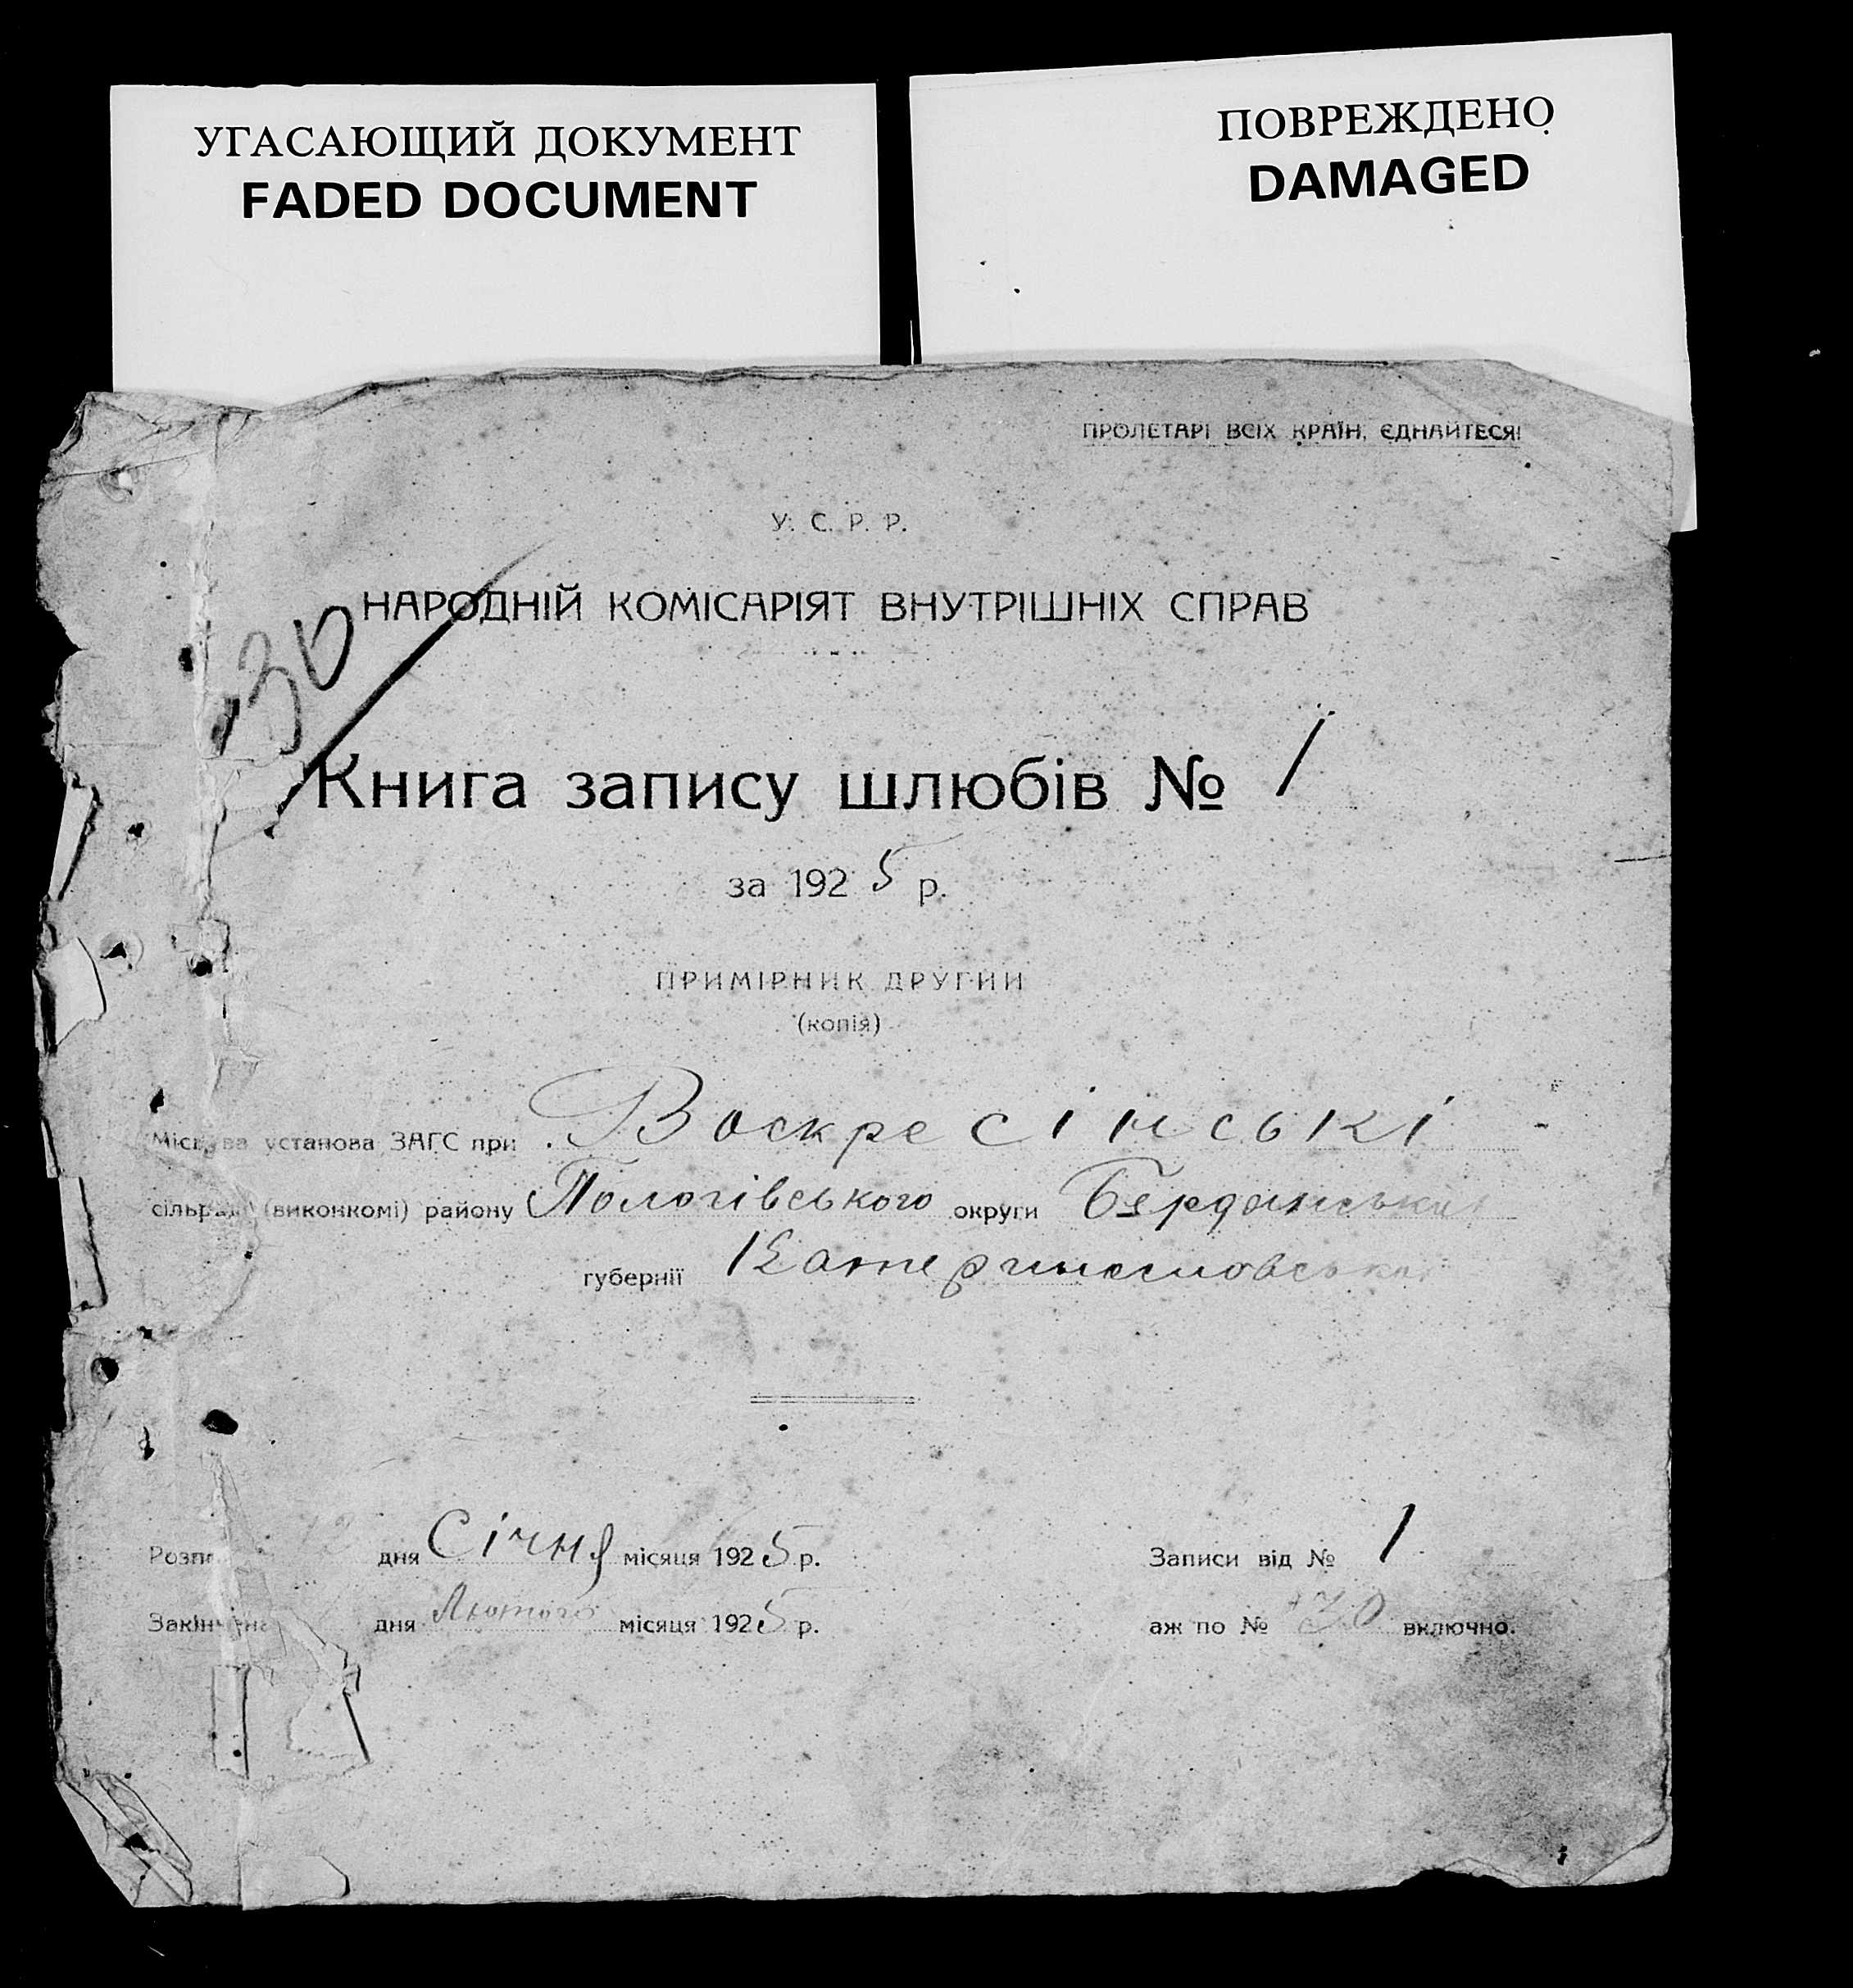 УГАСАЮЩИЙ ДОКУМЕНТ
FADED DOCUMENT
ПОВРЕЖДЕНО
DAMAGED
ПРОЛЕТАРІ ВСІХ КРАЇН, ЄДНАЙТЕСЯ!
У. С. Р. Р.
НАРОДНІЙ КОМІСАРІЯТ ВНУТРІШНІХ СПРАВ
30
Книга запису шлюбів № 1
за 1925 р.
ПРИМІРНИК ДРУГИЙ
(копія)
установа ЗАГС при Воскресінські
(виконкомі) району Пологівського округи
губернії
дня Січня місяця 1925 р.
Записи від № 1
дня Лютого місяця 1925 р.
аж по № 30 включно.